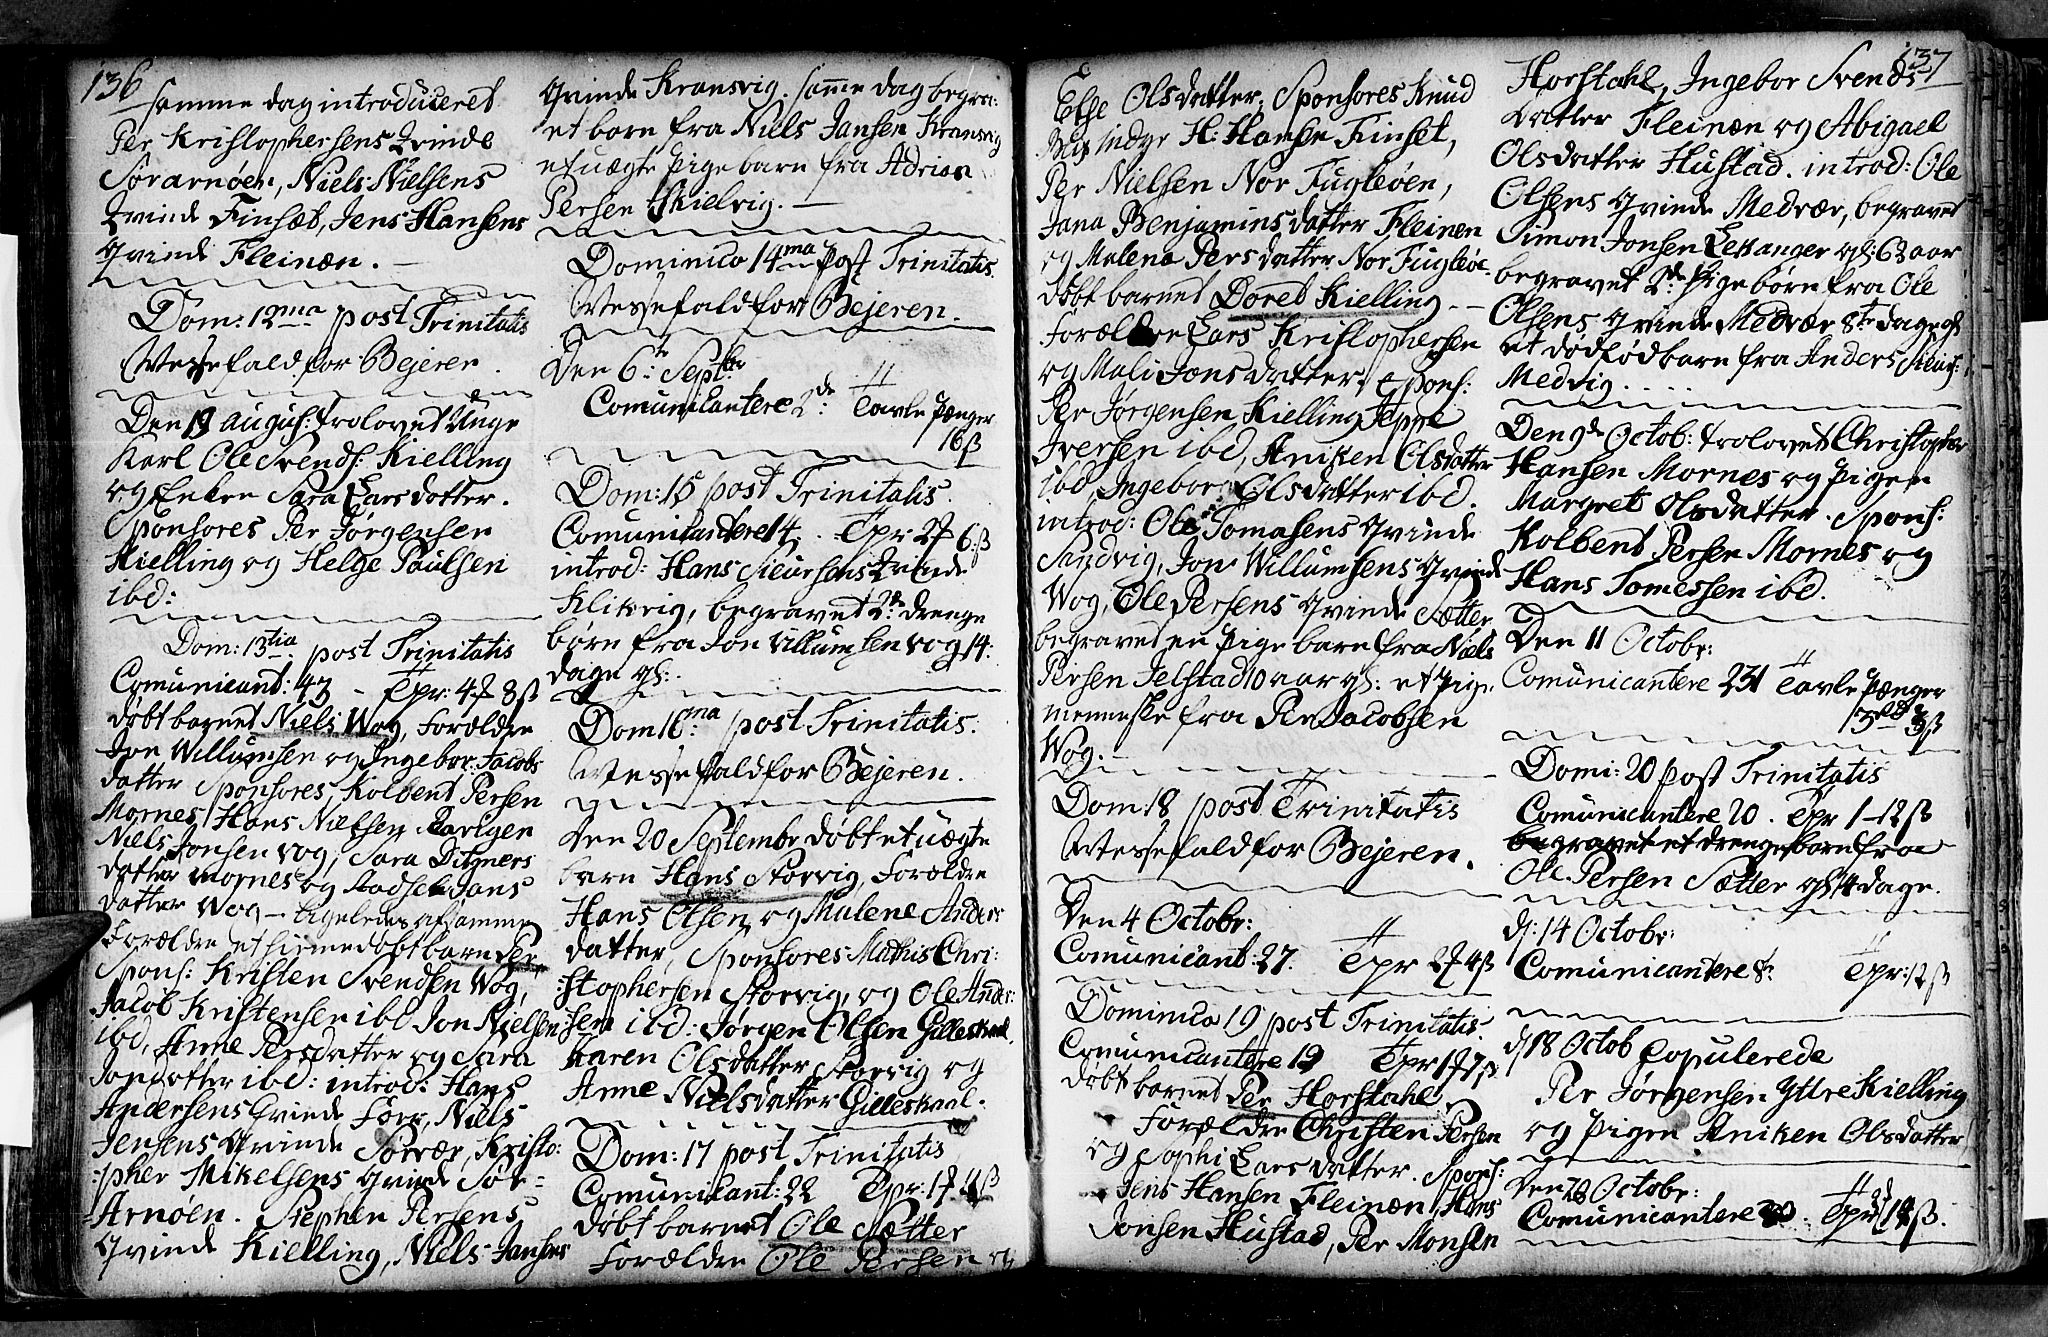 136
samme dag introduceret
Per Kristophersens Qvinde
Sørarnøen, Niels Nielsens
Qvinde Finsæt, Jens Hansens
Qvinde Fleinæn.
Dom: 12ma post Trinitatis
Messefald for Bejeren.
Den 19 August: trolovet Unge
Karl Ole Svends: Kielling
og Enken Sara Larsdatter.
Sponsores Per Jørgensen
Kielling og Helge Paulsen
ibd:
Dom: 13tia post Trinitatis
Comunicant: 43 - Tpr: 4 8 ß
døbt barnet Niels Wog, Forældre
Jon Willumsen og Ingebor Jacobs
datter Sponsores, Kolbent Persen
Mornes, Hans Nielsen
Niels Jonsen Vog, Sara Ditmers
datter Mornes og Jans
datter Wog - ligeledes af samme
Forældre et hiemedøbt barn Per
Spons: Kristen Svendsen Wog,
Jacob Kristensen ibd Jon Nielsen
ibd, Anne Persdatter og Sara
Jondatter ibd: introd: Hans
Andersens Qvinde Forr, Niels
Jensens Qvinde Sørvær, Kristo:
:pher Mikelsens Qvinde Sør-
Arnøen. Stephen Persens
Qvinde Kielling, Niels Jansens
Qvinde Kransvig. samme dag begra:
et barn fra Niels Jansen Kransvig
et uægte Pige barn fra Adrian
Persen Skielvig.
Dominica 14ma Post Trinitatis.
Messefald for Bejeren.
Den 6te Septbr
Comunicantere 2de Tavle Pænger
16 ß
Dom: 15 post Trinitatis.
Comunicantere 14. Tpr 2 6 ß
introd: Hans Sieursens Qvinde
Klikvig, begravet 2de drenge
børn fra Jon Villumsen Vog 14
dage gl:.
Dom 16ma post Trinitatis.
Messefald for Bejeren.
Den 20 Septembr døbt et uægte
barn Hans Storvig, Forældre
Hans Olsen og Malene Anders
datter, Sponsores Mathis Chri:
:stophersen Storvig, og Ole Ander:
:sen ibd: Jørgen Olsen Gilleskaal.
Karen Olsdatter Storvig og
Anne Nielsdatter Gilleskaal.
Dom: 17 post Trinitatis
Comunicant: 22 Tpr: 1 ß
døbt barnet Ole Sætter
Forældre Ole Persen og
137
Else Olsdatter. Sponsores Knud
indye H: Hansen Finset,
Per Nielsen Nor Fugleøen,
Jana Benjamins datter Fleinen
og Malena Pers datter Nor Fugleøe.
døbt barnet Doret Kielling
Forældre Lars Kristophersen
og Mali Jons datter, Spons:
Per Jørgensen Kielling Jeppe
Iversen ibd, Aniken Olsdatter
ibd, Ingebor Olsdatter ibd.
introd: Ole Tomasens Qvinde
Sandvig, Jon Willumsens Qvinde
Wog, Ole Persens Qvinde Sætter
begravet en Pige barn fra Niels
Persen Jelstad 10 aar gl: et Pige
menneske fra Per Jacobsen
Wog.
Dom: 18 post Trinitatis
Messefald for Bejeren.
Den 4 Octobr:
Comunicant: 27. Tpr 2 4 ß
Dominica 19 post Trinitatis.
Comunicantere 19 Tpr 1 7 ß
døbt barnet Per Horstahl
Forældre Christen Persen
og Sophi Lars datter. Spons:
Jens Hansen Fleinæn, Hans
Jonsen Hustad, Per Monsen
Horstahl, Ingebor Svends
datter Fleinæn og Abigael
Olsdatter Hustad. introd: Ole
Olsens Qvinde Medvær, begravet
Simon Jonsen Levanger gl: 63 aar
begravet 2de Pige børn fra Ole
Olsens Qvinde Medvær 8te dage gl
et dødfød barn fra Anders
Medvig.
Den 9de Octob: trolovet Christopher
Hansen Mornes og Pigen
Margret Olsdatter. Spons:
Kolbent Persen Mornes og
Hans Tomessen ibd.
Den 11 Octobr:
Comunicantere 231 Tavle Pænger
3 ß
Domi: 20 post Trinitatis
Comunicantere 20. Tpr 1-12 ß
begravet et drenge barn fra
Ole Persen Sætter gl: 14 dage.
d: 14 Octobr:
Comunicantere 8te Tpr: 12 ß
d 18 Octob Copulerede
Per Jørgensen Yttre Kielling
og Pigen Aniken Olsdatter
Den 28 Octobr:
Comunicantere 20 Tpr 12 ß.